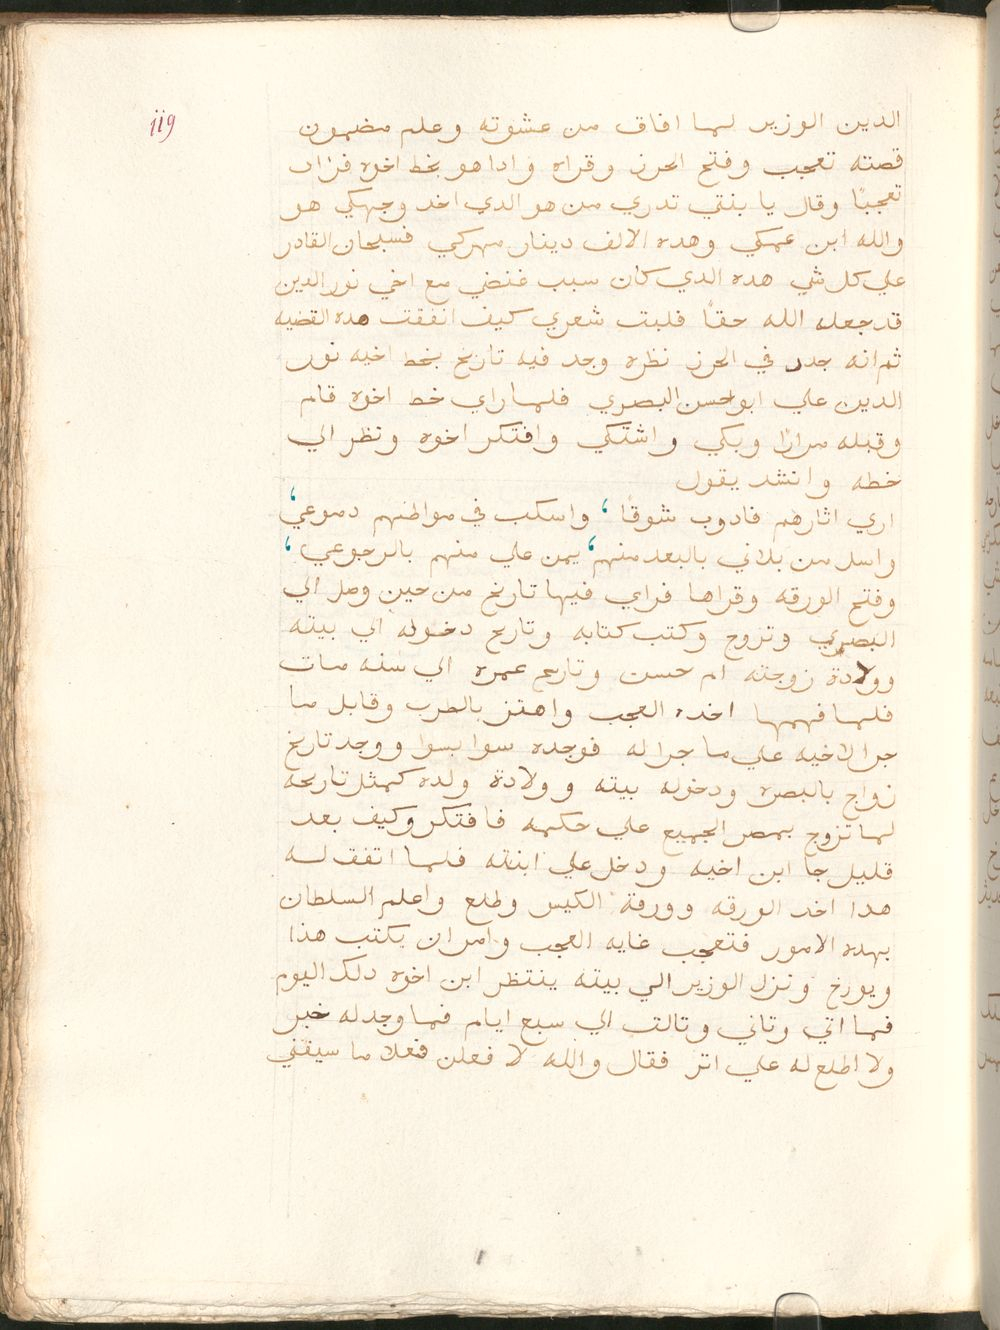 119
الدين الوزير لما افاق من عشوته وعلم مضمون
قصته تعجب وفتح الحرز وقراه واداهو بخط اخوه فزاد
تعجبًا وقال يا بنتي تدري من هو الدي اخد وجهكي هو
والله ابن عمكي وهده الالف دينار مهركي فسبحان القادر
علي كل شي هده الدي كان سبب غنضي مع اخي نور الدين
قد جعله الله حقًا فليت شعري كيف انفقت هده القضيه
ثم انه جدد في الحرز نظره وجد فيه تاريخ بخط اخيه نور
الدين علي ابو حسن البصري فلما راي خط اخوه قام
وقبله مرارًا وبكي واشتكي وافتكر اخوه ونظر الي
خطه وانشد يقول
اري اثارهم فادوب شوقًا ، واسكب في مواطنهم دموعي ،
واسل من بلاني بالبعد منهم ، يمن علي منهم بالرجوعي ،
وفتح الورقه وقراها فراي فيها تاريخ من حين وصل الي
البصري وتزوج وكتب كتابه وتاريح دخوله الي بيته
وولادة زوجته ام حسن وتاريح عمره الي سنه مات
فلما فهمها اخده العجب واهتز بالطرب وقابل ما
جرا لاخيه علي ما جرا له فوجده سوا بسوا ووجد تاريخ
زواج بالبصره ودخوله بيته وولادة ولده كمثل تاريحه
لما تزوج بمصر الجميع علي حكمه فافتكر وكيف بعد
قليل جا ابن اخيه ودخل علي ابنته فلما اتفق له
هدا اخد الورقه وورقة الكيس وطلع واعلم السلطان
بهده الامور فتعجب غايه العجب وامر ان يكتب هذا
ويورخ ونزل الوزير الي بيته ينتظر ابن اخوه دلك اليوم
فما اتي وتاني وتالت الي سبع ايام فما وجد له خبر
ولا اطلع له علي اتر فقال والله لا فعلن فعلا ما سبقني